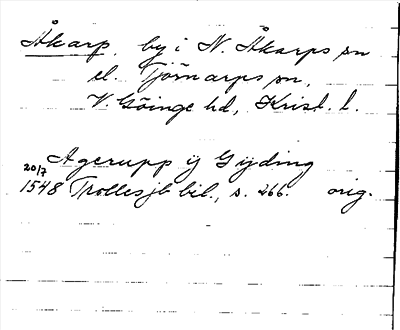 Åkarp, by i N. Åkarps sn
el. Tjörnarps sn,
V. Göinge hd, Krist. l.
Agerupp ij Gijding
20/7
1548 Trollesjb bil., s. 266. orig.